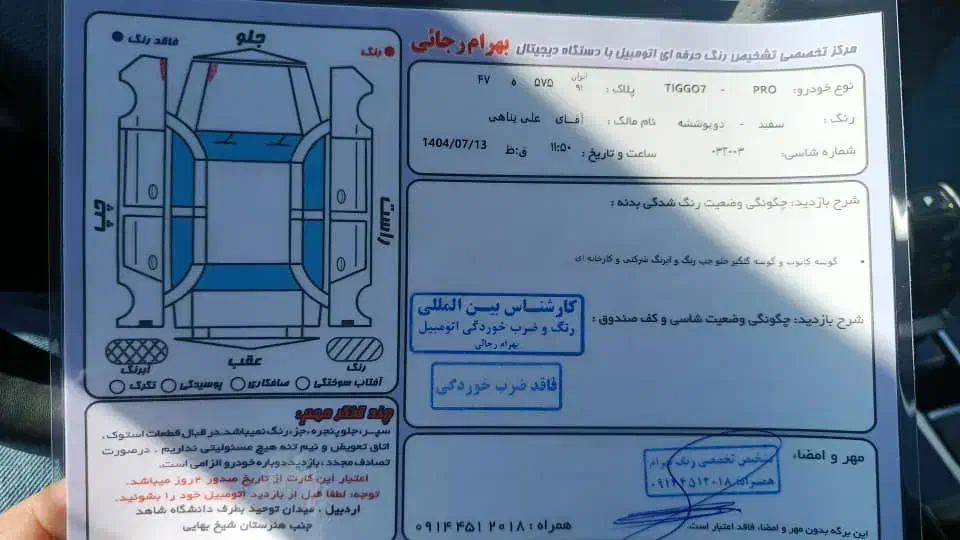 مرکز تخصصی تشخیص رنگ حرفه ای اتومبیل با دستگاه دیجیتال بهرام رجائی
نوع خودرو: TIGGO7 - PRO
پلاک: ایران ۹۱ ۵۷۵ ه ۴۷
رنگ: سفید - دوپوششه
نام مالک: آقای علی پناهی
شماره شاسی: ۰۳۲۰۰۳
ساعت و تاریخ: ۱۱:۵۰ ق:ظ 1404/07/13
شرح بازدید: چگونگی وضعیت رنگ شدگی بدنه:
• گوشه کاپوت و گوشه گلگیر جلو چپ رنگ و ابرنگ شرکتی و کارخانه ای
شرح بازدید: چگونگی وضعیت شاسی و کف صندوق:
کارشناس بین المللی
رنگ و ضرب خوردگی اتومبیل
بهرام رجائی
فاقد ضرب خوردگی
مهر و امضاء
تشخیص تخصصی رنگ بهرام
همراه: ۰۹۱۴۴۵۱۲۰۱۸
همراه: ۰۹۱۴ ۴۵۱ ۲۰۱۸
این برگه بدون مهر و امضا، فاقد اعتبار است.
رنگ
فاقد رنگ
جلو
چپ
راست
عقب
رنگ
آبرنگ
آفتاب سوختگی
صافکاری
پوسیدگی
تگرگ
چند تذکر مهم:
سپر، جلو پنجره، جزء رنگ نمیباشد. در قبال قطعات استوک،
اتاق تعویض و نیم تنه هیچ مسئولیتی نداریم. درصورت
تصادف مجدد، بازدید دوباره خودرو الزامی است.
اعتبار این کارت از تاریخ صدور ۲ روز میباشد.
توجه: لطفا قبل از بازدید اتومبیل خود را بشوئید.
اردبیل، میدان توحید بطرف دانشگاه شاهد
جنب هنرستان شیخ بهایی